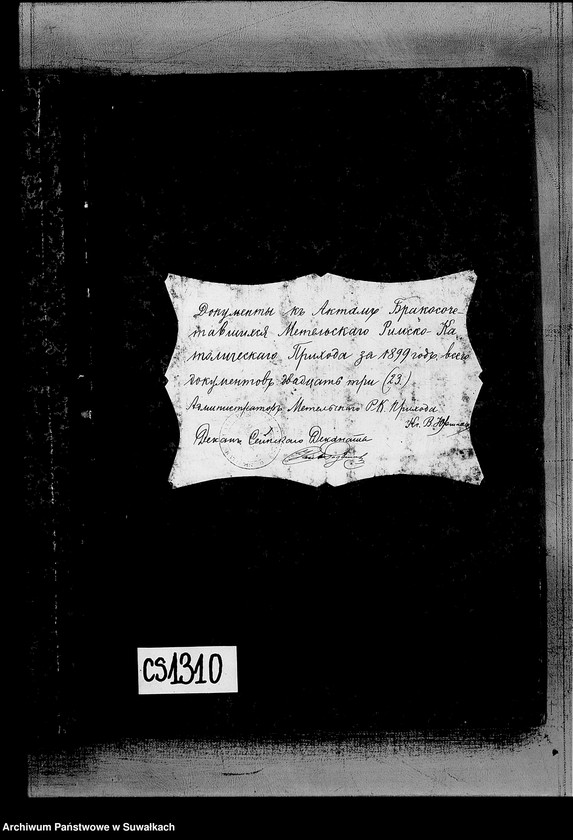 Документы къ Актамъ Бракосоче-
тавшихся Метельскаго Римско-Ка
толическаго Прихода за 1899 годъ, всего
документовъ двадцать три (23.)
Администраторъ Метельскаго Р.К. Прихода
Кс. В.
Деканъ Сейнскаго Деканата
CS1310
Archiwum Państwowe w Suwałkach